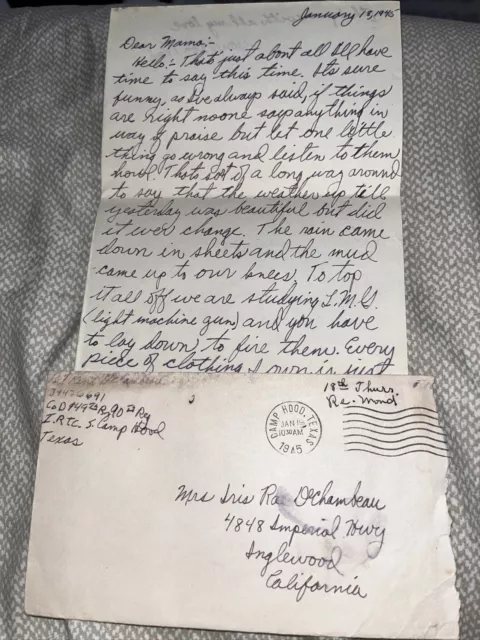 January 15, 1945
Dear Mama:-
Hello:- That's just about all I'll have
time to say this time. It's sure
funny, as I've always said, if things
are right no one says anything in
way of praise but let one little
thing go wrong and listen to them
howl. That's sort of a long way around
to say that the weather up till
yesterday was beautiful but did
it ever change. The rain came
down in sheets and the mud
came up to our knees. To top
it all off we are studying L.M.G.
(light machine gun) and you have
to lay down to fire them. Every
piece of clothing I own is just
Co D 149th 90th Reg
I.R.T.C. Camp Hood
Texas
18th Thurs
Re. Mond
CAMP HOOD, TEXAS
JAN 16
10:30 AM
1945
Mrs Iris Rae DeChambeau
4848 Imperial Hwy
Inglewood
California